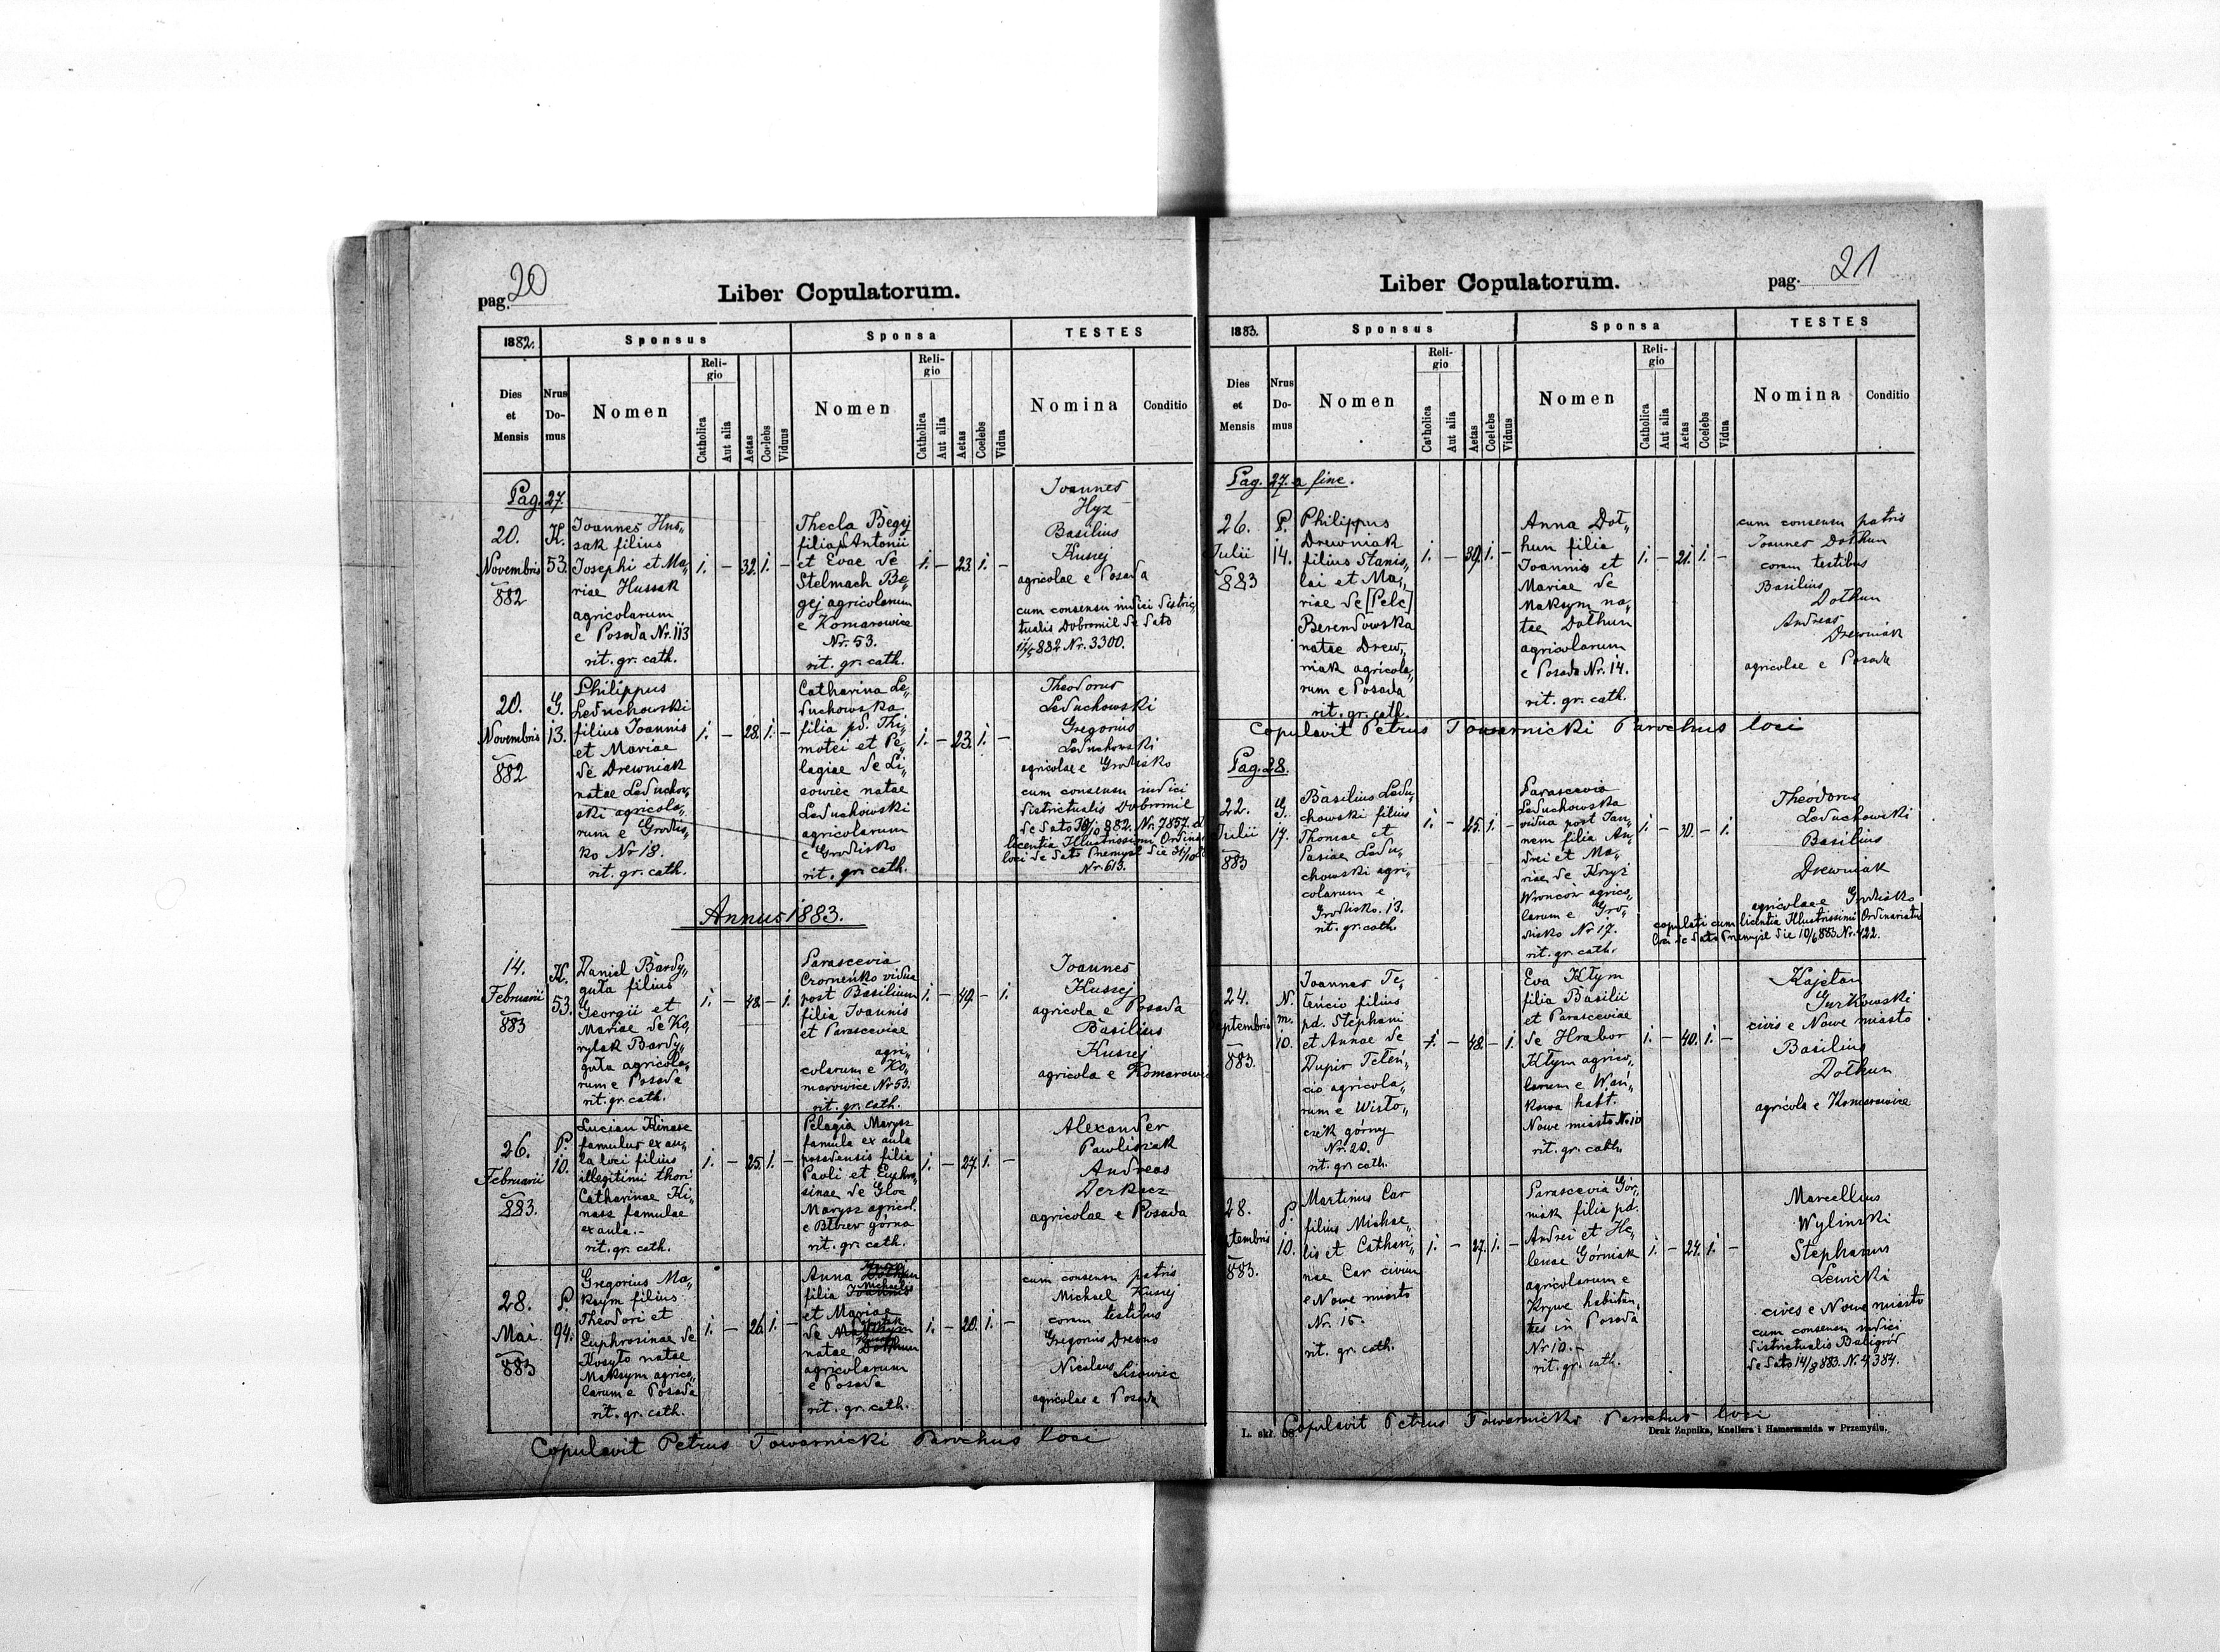 pag. 20
Liber Copulatorum.
1882.
Sponsus
Sponsa
TESTES
Dies et Mensis
Nrus Do-mus
Nomen
Reli-gio
Catholica
Aut alia
Aetas
Coelebs
Viduus
Nomen
Reli-gio
Catholica
Aut alia
Aetas
Coelebs
Vidua
Nomina
Conditio
Pag. 27
20.
Novembris
882
K.
53.
Joannes Hus„
sak filius
Josephi et Ma„
riae Hussak
agricolarum
e Posada Nr. 113
rit. gr. cath.
1. – 32. 1. –
Thecla Begej
filia Antonii
et Evae de
Stelmach Be„
gej agricolarum
e Komarowice
Nr. 53.
rit. gr. cath.
1. – 23. 1. –
Joannes
Hyz
Basilius
Kussej
agricolae e Posada
cum consensu iudici distric„
tualis Dobromil de dato
882 Nr. 3300.
20.
Novembris
882
G.
13.
Philippus
Leduchowski
filius Joannis
et Mariae
de Drewniak
natae Leduchow„
ski agricola„
rum e Grodis„
ko Nr 18.
rit. gr. cath.
1. – 28. 1. –
Catharina Le„
duchowska
filia pd. Thi„
motei et Pe„
lagiae de Li„
sowiec natae
Leduchowski
agricolarum
e Grodisko
rit. gr. cath.
1. – 23. 1. –
Theodorus
Leduchowski
Gregorius
Leduchowski
agricolae e Grodisko
cum consensu iudici
districtualis Dobromil
de dato 30/10 882. Nr. 7857. et
licentia Illustrissimi Ordina
loci de dato Premysl die 31/10
Nr. 613.
Annus 1883.
14.
Februarii
883
K.
53.
Daniel Bardy„
guła filius
Georgii et
Mariae de Ko„
rylak Bardy„
guła agricola„
rum e Posada
rit. gr. cath.
1. – 48. – 1.
Parascevia
Cromeńko vidua
post Basilium
filia Joannis
et Parasceviae
agri„
colarum e Ko„
marowice Nr 53.
rit. gr. cath.
1. – 49. – 1.
Joannes
Kussej
agricola e Posada
Basilius
Kussej
agricola e Komarowi
26.
Februarii
883.
P.
10.
Lucian Kinasz
famulus ex au„
la loci filius
illegitimi thori
Catharinae Ki„
nasz famulae
ex aula.–
rit. gr. cath.
1. – 25. 1. –
Pelagia Marysz
famula ex aula
posadensis filia
Pauli et Euphro„
sinae de Gloc
Marysz agricol.
e Berzew górna
rit. gr. cath.
1. – 27. 1. –
Alexander
Pawliszak
Andreas
Derkacz
agricolae e Posada
28.
Mai.
883
P.
94.
Gregorius Ma„
ksym filius
Theodori et
Euphrosinae de
Kosyło natae
Maksym agrico„
larum e Posada
rit. gr. cath.
1. – 26. 1. –
Anna
filia Michaelis
et Mariae
de
natae
agricolarum
e Posada
rit. gr. cath.
1. – 20. 1. –
cum consensu patris
Michael Kussej
coram testibus
Gregorius Drozno
Nicolaus Lisowiec
agricolae e Posada
Copulavit Petrus Towarnicki Parochus loci
Liber Copulatorum.
pag. 21
1883.
Sponsus
Sponsa
TESTES
Dies et Mensis
Nrus Do-mus
Nomen
Reli-gio
Catholica
Aut alia
Aetas
Coelebs
Viduus
Nomen
Reli-gio
Catholica
Aut alia
Aetas
Coelebs
Vidua
Nomina
Conditio
Pag. 27. a fine.
26.
Julii
883
P.
14.
Philippus
Drewniak
filius Stanis„
lai et Ma„
riae de [Pelc]
Berendowska
natae Drew„
niak agricola„
rum e Posada
rit. gr. cath.
1. – 30. 1. –
Anna Doł„
hun filia
Joannis et
Mariae de
Maksym na„
tae Dołhun
agricolarum
e Posada Nr. 14.
rit. gr. cath.
1. – 21. 1. –
cum consensu patris
Joannes Dołhun
coram testibus
Basilius
Dołhun
Andreas
Drewniak
agricolae e Posada
Copulavit Petrus Towarnicki Parochus loci
Pag. 28.
22.
Julii
883
G.
17.
Basilius Ledu„
chowski filius
Thomae et
Pasiae Ledu„
chowski agri„
colarum e
Grodisko. 13.
rit. gr. cath.
1. – 25. 1. –
Parascevia
Leduchowska
vidua post Joan„
nem filia An„
drei et Ma„
riae de Kryż
Wronców agrico„
larum e Gro„
disko Nr 17.
rit. gr. cath.
1. – 30. – 1.
Theodorus
Leduchowski
Basilius
Drewniak
agricolae e Grodisko
copulati cum licentia Illustrissimi Ordinariatus
loci de dato Premysl die 10/6 883. Nr. 422.
24.
ptembris
883.
N.
m.
10.
Joannes Te„
leńcio filius
pd. Stephani
et Annae de
Dupir Teleń„
cio agricola„
rum e Wisło„
czek górny
Nr. 20.
rit. gr. cath.
1. – 48. – 1.
Eva Kłym
filia Basilii
et Parasceviae
de Hrabor
Kłym agrico„
larum e Wań„
kowa habt.
Nowe miasto Nr. 10
rit. gr. cath.
1. – 40. 1. –
Kajetan
Gurkowski
civis e Nowe miasto
Basilius
Dołhun
agricola e Komarowice
28.
tembris
883.
P.
10.
Martinus Car
filius Michae„
lis et Cathari„
nae Car civium
e Nowe miasto
Nr. 15.
rit. gr. cath.
1. – 27. 1. –
Parascevia Gór„
niak filia pd.
Andrei et He„
lenae Górniak
agricolarum e
Krywe habitan„
tes in Posada
Nr 10.–
rit. gr. cath.
1. – 24. 1. –
Marcellius
Wylinski
Stephanus
Lewicki
cives e Nowe miasto
cum consensu iudici
districtualis Baligród
de dato 14/8 883. Nr. 4384.
Copulavit Petrus Towarnicki Parochus loci
L. skł.
Druk Żupnika, Knollera i Hamerszmida w Przemyślu.